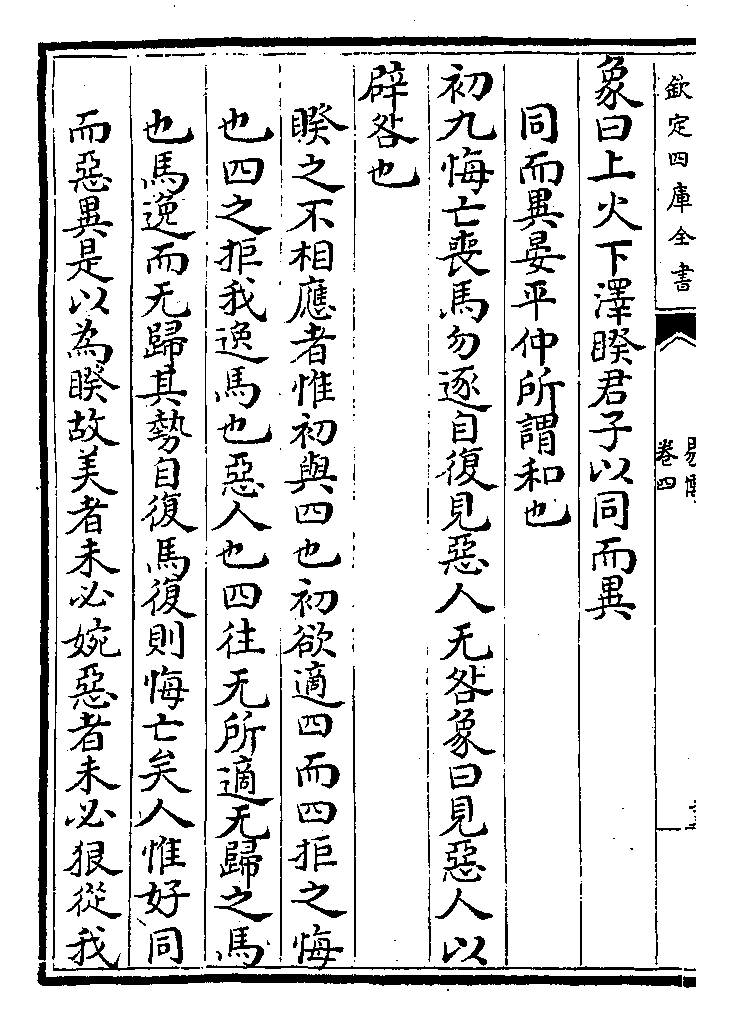 欽定四庫全書
卷四
象曰上火下澤睽君子以同而異
同而異晏平仲所謂和也
初九悔亡喪馬勿逐自復見惡人无咎象曰見惡人以
辟咎也
睽之不相應者惟初與四也初欲適四而四拒之悔
也四之拒我逸馬也惡人也四往无所適无歸之馬
也馬逸而无歸其勢自復馬復則悔亡矣人惟好同
而惡異是以為睽故美者未必婉惡者未必狠從我